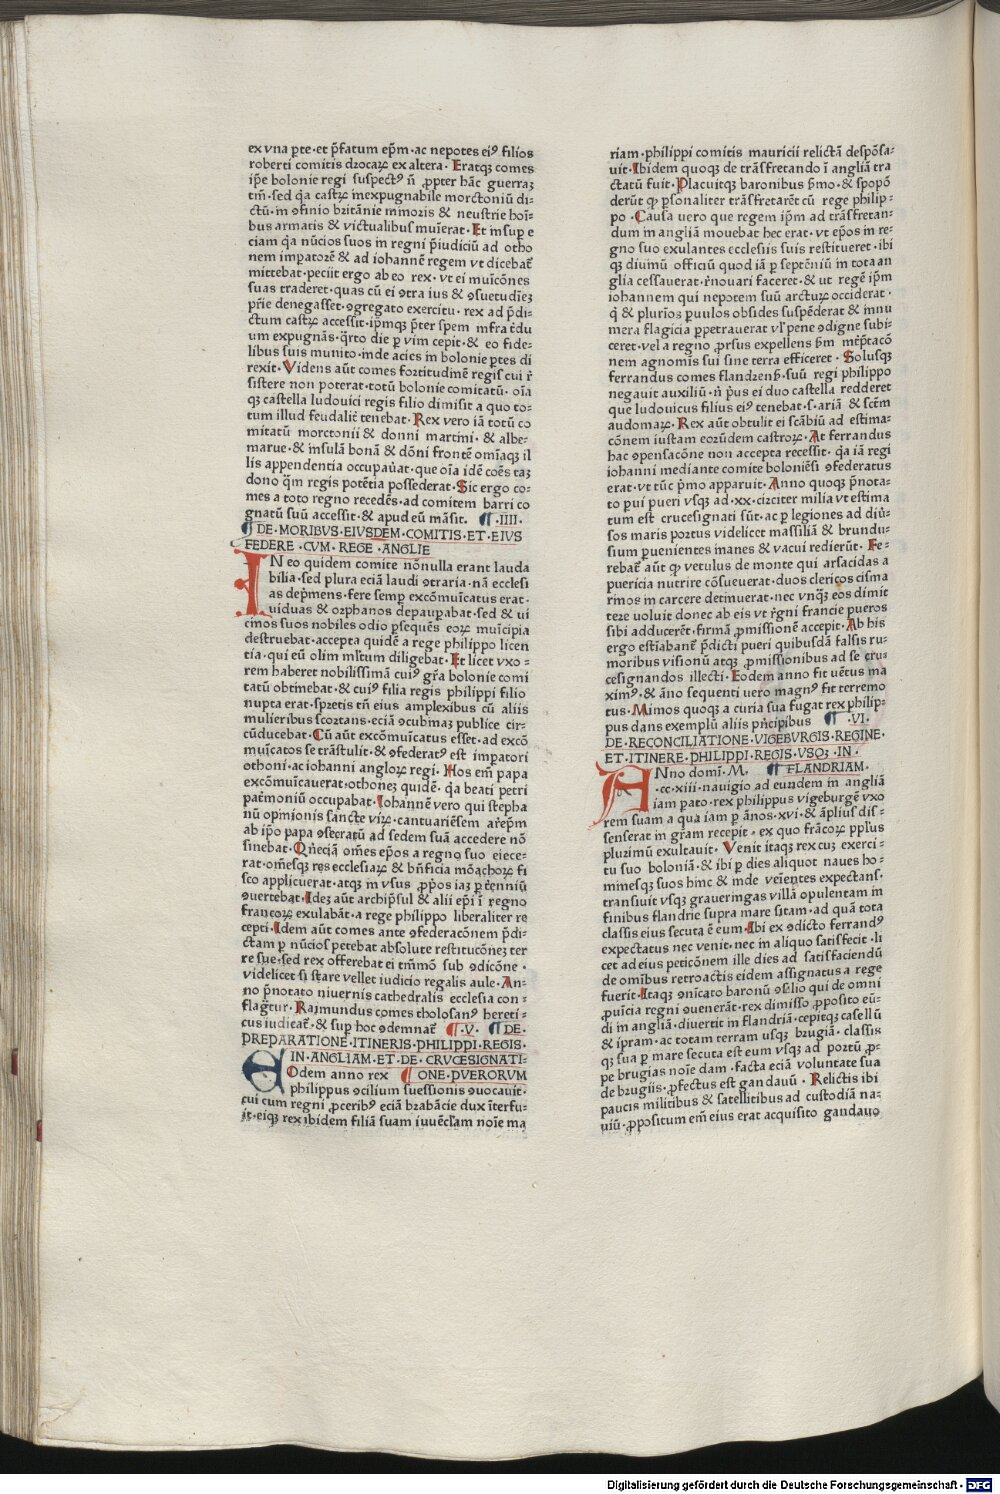 ex vna ꝑte·et p̄fatum ep̄m·ac nepotes eiꝰ filios
roberti comitis drocaꝝ ex altera·Eratqꝫ comes
ip̄e bolonie regi suspectꝰ n̄ ꝓpter hāc guerraꝫ
tm̄·sed q̄a castꝝ inexpugnabile morctoniū di⸗
ctū·in ꝯfinio britānie minoris & neustrie hoī⸗
bus armatis & victualibus muīerat·Et insup e
ciam q̄a nūcios suos in regni p̄iudiciū ad otho
nem impatorē & ad iohannē regem vt dicebat̄
mittebat·peciit ergo ab eo rex·vt ei muīcōnes
suas traderet·quas cū ei ꝯtra ius & ꝯsuetudīeꝫ
pr̄ie denegasset·ꝯgregato exercitu·rex ad p̄di⸗
ctum castꝝ accessit·ip̄mqꝫ p̄ter spem infra tͥdu
um expugnās·q̄rto die ꝑ vim cepit·& eo fide⸗
libus suis munito·inde acies in bolonie ꝑtes di
rexit·Videns aūt comes fortitudinē regis cui r̄
sistere non poterat·totū bolonie comitatū·oīa
qꝫ castella ludouici regis filio dimisit a quo to⸗
tum illud feudalit̄ tenebat·Rex vero iā totū co
mitatū morctonii & donni martini·& albe⸗
marue·& insulā bonā & dōni frontē omīaqꝫ il
lis appendentia occupauat·que oīa idē coēs taꝫ
dono q̄m regis potētia possederat·Sic ergo co⸗
mes a toto regno recedēs·ad comitem barri co
gnatū suū accessit·& apud eū māsit. ¶ ·IIII·
¶ DE·MORIBVS·EIVSDEM·COMITIS·ET·EIVS
FEDERE·CVM·REGE·ANGLIE
IN eo quidem comite nōnulla erant lauda
bilia·sed plura eciā laudi ꝯtraria·nā ecclesi
as dep̄mens·fere semp̄ excōmuīcatus erat·
viduas & orphanos depaupabat·sed & ui
cinos suos nobiles odio ꝑsequēs eoꝝ muīcipia
destruebat·accepta quidē a rege philippo licen
tia·qui eū olim mltum diligebat·Et licet vxo⸗
rem haberet nobilissimā cuiꝰ gr̄a bolonie comi
tatū obtinebat·& cuiꝰ filia regis philippi filio
nupta erat·spretis tn̄ eius amplexibus cū aliis
mulieribus scortans·eciā ꝯcubinaꝫ publice cir⸗
cūducebat·Cū aūt excōmuīcatus esset·ad excō
muīcatos se trāstulit·& ꝯfederatꝰ est impatori
othoni·ac iohanni angloꝝ regi·Hos em̄ papa
excōmuīcauerat·othoneꝫ quidē·q̄a beati petri
patͥmoniū occupabat·Iohannē vero qui stepha
nū opinionis sancte viꝝ·cantuariēsem ar̄ep̄m
ab ip̄o papa ꝯsecratū ad sedem suā accedere nō
sinebat·Qn̄eciā om̄es ep̄os a regno suo eiece⸗
rat·om̄esqꝫ res ecclesiaꝝ & bn̄ficia mōachoꝝ fi
sco applicuerat·atqꝫ in vsus ꝓpos iaꝫ ꝑ tͥenniū
ꝯuertebat·Ideꝫ aūt archip̄sul & alii ep̄i ī regno
francoꝝ exulabāt·a rege philippo liberaliter re
cepti·Idem aūt comes ante ꝯfederacōnem p̄di⸗
ctam ꝑ nūcios petebat absolute restitucōneꝫ ter
re sue·sed rex offerebat ei tm̄mō sub ꝯdicōne·
videlicet si stare vellet iudicio regalis aule·An⸗
no p̄notato niuernis cathedralis ecclesia con⸗
flagr̄tur·Raimundus comes tholosanꝰ hereti⸗
cus iudicat̄·& sup hoc ꝯdemnat̄ ¶ ·V· ¶ DE·
PREPARATIONE·ITINERIS·PHILIPPI·REGIS·
IN·ANGLIAM·ET·DE·CRVCESIGNATI⸗
EOdem anno rex ¶ ONE·PVERORVM
philippus ꝯcilium suessionis ꝯuocauit·
cui cum regni ꝓceribꝰ eciā brabācie dux īterfu⸗
it·eiqꝫ rex ibidem filiā suam iuuēcl̄am noīe ma
riam·philippi comitis mauricii relictā despōsa⸗
uit·Ibidem quoqꝫ de trāsfretando ī angliā tra
ctatū fuit·Placuitqꝫ baronibus p̄mo·& spopō
derūt qꝫ ꝑsonaliter trāsfretarēt cū rege philip⸗
po·Causa uero que regem ip̄m ad trāsfretan⸗
dum in angliā mouebat hec erat·vt ep̄os in re⸗
gno suo exulantes ecclesiis suis restitueret·ibi
qꝫ diuinū officiū quod iā ꝑ septēniū in tota an
glia cessauerat·r̄nouari faceret·& ut regē ip̄m
iohannem qui nepotem suū arctuꝝ occiderat·
q̄ & plurios puulos obsides suspēderat & innu
mera flagicia ꝑpetrauerat vl̄ pene ꝯdigne subi⸗
ceret·vel a regno ꝓrsus expellens p̄m int̄p̄tacō
nem agnomis sui sine terra efficeret·Solusqꝫ
ferrandus comes flandren̄·suū regi philippo
negauit auxiliū·n̄ p̄us ei duo castella redderet
que ludouicus filius eiꝰ tenebat·s·ariā & sc̄m
audomaꝝ·Rex aūt obtulit ei scābiū ad estima⸗
cōnem iustam eorūdem castroꝝ·At ferrandus
hac ꝯpensacōne non accepta recessit·q̄a iā regi
iohanni mediante comite boloniēsi ꝯfederatus
erat·vt tūc p̄mo apparuit·Anno quoqꝫ p̄nota⸗
to pui pueri vsqꝫ ad·xx·circiter milia vt estima
tum est crucesignati sūt·ac ꝑ legiones ad diū̄⸗
sos maris portus videlicet massiliā & brundu⸗
sium puenientes inanes & vacui redierūt·Fe⸗
rebat̄ aūt qꝫ vetulus de monte qui arsacidas a
puericia nutrire cōsueuerat·duos clericos cisma
rinos in carcere detinuerat·nec vnqꝫ̄ eos dimit
tere uoluit donec ab eis vt r̄gni francie pueros
sibi adducerēt·firmā ꝓmissionē accepit·Ab his
ergo estīabant̄ p̄dicti pueri quibusdā falsis ru⸗
moribus visionū atqꝫ ꝓmissionibus ad se cru⸗
cesignandos illecti·Eodem anno fit uētus ma
ximꝰ·& āno sequenti uero magnꝰ fit terremo
tus·Mimos quoqꝫ a curia sua fugat rex philip⸗
pus dans exemplū aliis pn̄cipibus ¶ ·VI·
DE·RECONCILIATIONE·VIGEBVRGIS·REGINE·
ET·ITINERE·PHILIPPI·REGIS·VSQꝪ·IN·
ANno domī·M· ¶ FLANDRIAM·
·cc·xiii·nauigio ad eundem in angliā
iam pato·rex philippus vigeburgē vxo
rem suam a qua iam ꝑ ānos·xvi·& āplius dis⸗
senserat in gr̄am recepit·ex quo frācoꝝ ppl̄us
plurimū exultauit·Venit itaqꝫ rex cuꝫ exerci⸗
tu suo boloniā·& ibi ꝑ dies aliquot naues ho⸗
minesqꝫ suos hinc & inde veīentes expectans·
transiuit vsqꝫ graueringas villā opulentam in
finibus flandrie supra mare sitam·ad quā tota
classis eius secuta ē eum·Ibi ex ꝯdicto ferrandꝰ
expectatus nec venit·nec in aliquo satisfecit·li
cet ad eius peticōnem ille dies ad satisfaciendū
de omībus retroactis eidem assignatus a rege
fuerit·Itaqꝫ ꝯnicato baronū ꝯsilio qui de omni
ꝓuīcia regni ꝯuenerāt·rex dimisso ꝓposito eū⸗
di in angliā·diuertit in flandriā·cepitqꝫ casellū
& ipram·ac totam terram usqꝫ brugiā·classis
qꝫ sua ꝑ mare secuta est eum vsqꝫ ad portū ꝓ⸗
pe brugias noīe dam·facta eciā voluntate sua
de brugiis·ꝓfectus est gandauū·Relictis ibi
paucis militibus & satellitibus ad custodiā na⸗
uiū·ꝓpositum em̄ eius erat acquisito gandauo
Digitalisierung gefördert durch die Deutsche Forschungsgemeinschaft · DFG